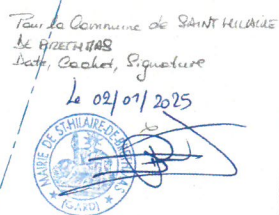 Pour la Commune de SAINT HILAIRE
DE BRETHMAS
Date, Cachet, Signature
Le 02/01/2025
MAIRIE DE ST-HILAIRE-DE-BRETHMAS
(GARD)